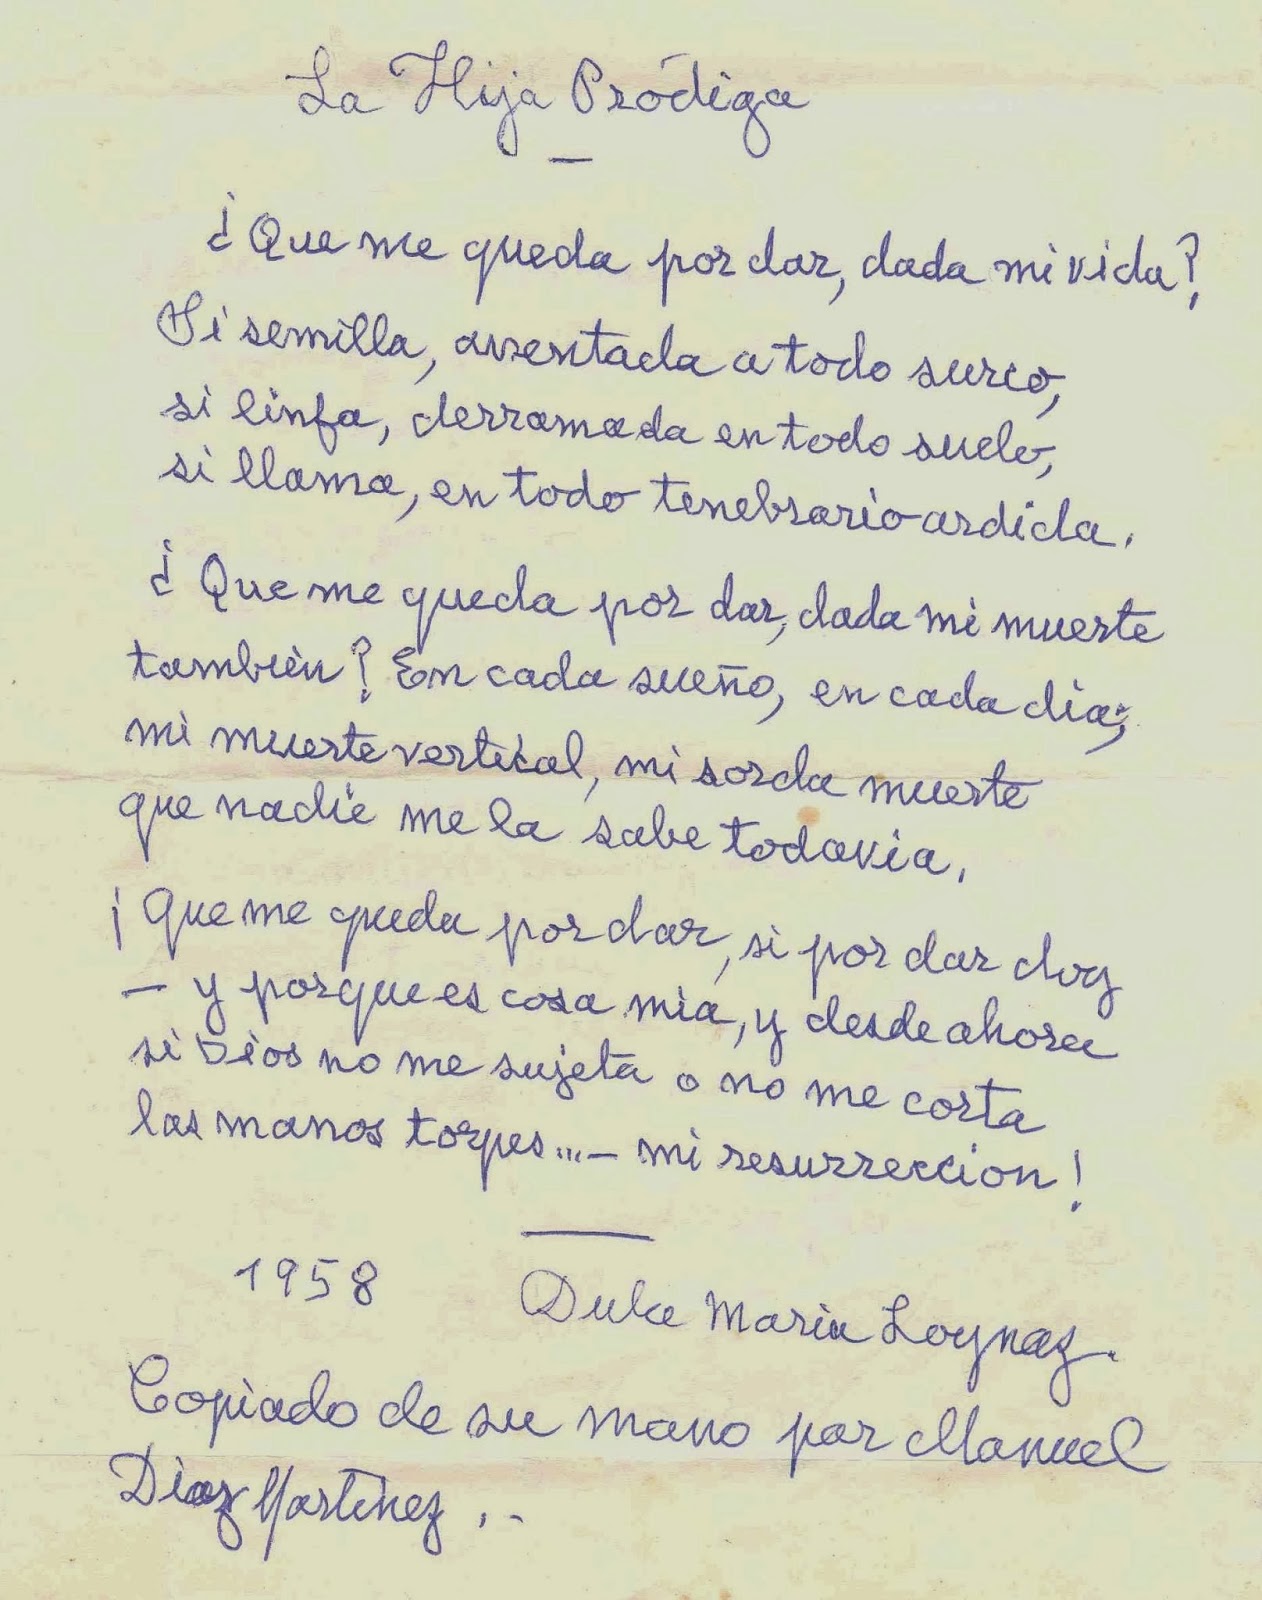 La Hija Pródiga
—
¿Que me queda por dar, dada mi vida?
Si semilla, aventada a todo surco,
si linfa, derramada en todo suelo,
si llama, en todo tenebrario ardida.
¿Que me queda por dar, dada mi muerte
también? En cada sueño, en cada dia;
mi muerte vertical, mi sorda muerte
que nadie me la sabe todavia.
¡Que me queda por dar, si por dar doy
— y porque es cosa mia, y desde ahora
si Dios no me sujeta o no me corta
las manos torpes...— mi resurreccion!
1958 Dulce Maria Loynaz.
Copiado de su mano par Manuel
Diaz Martinez ...